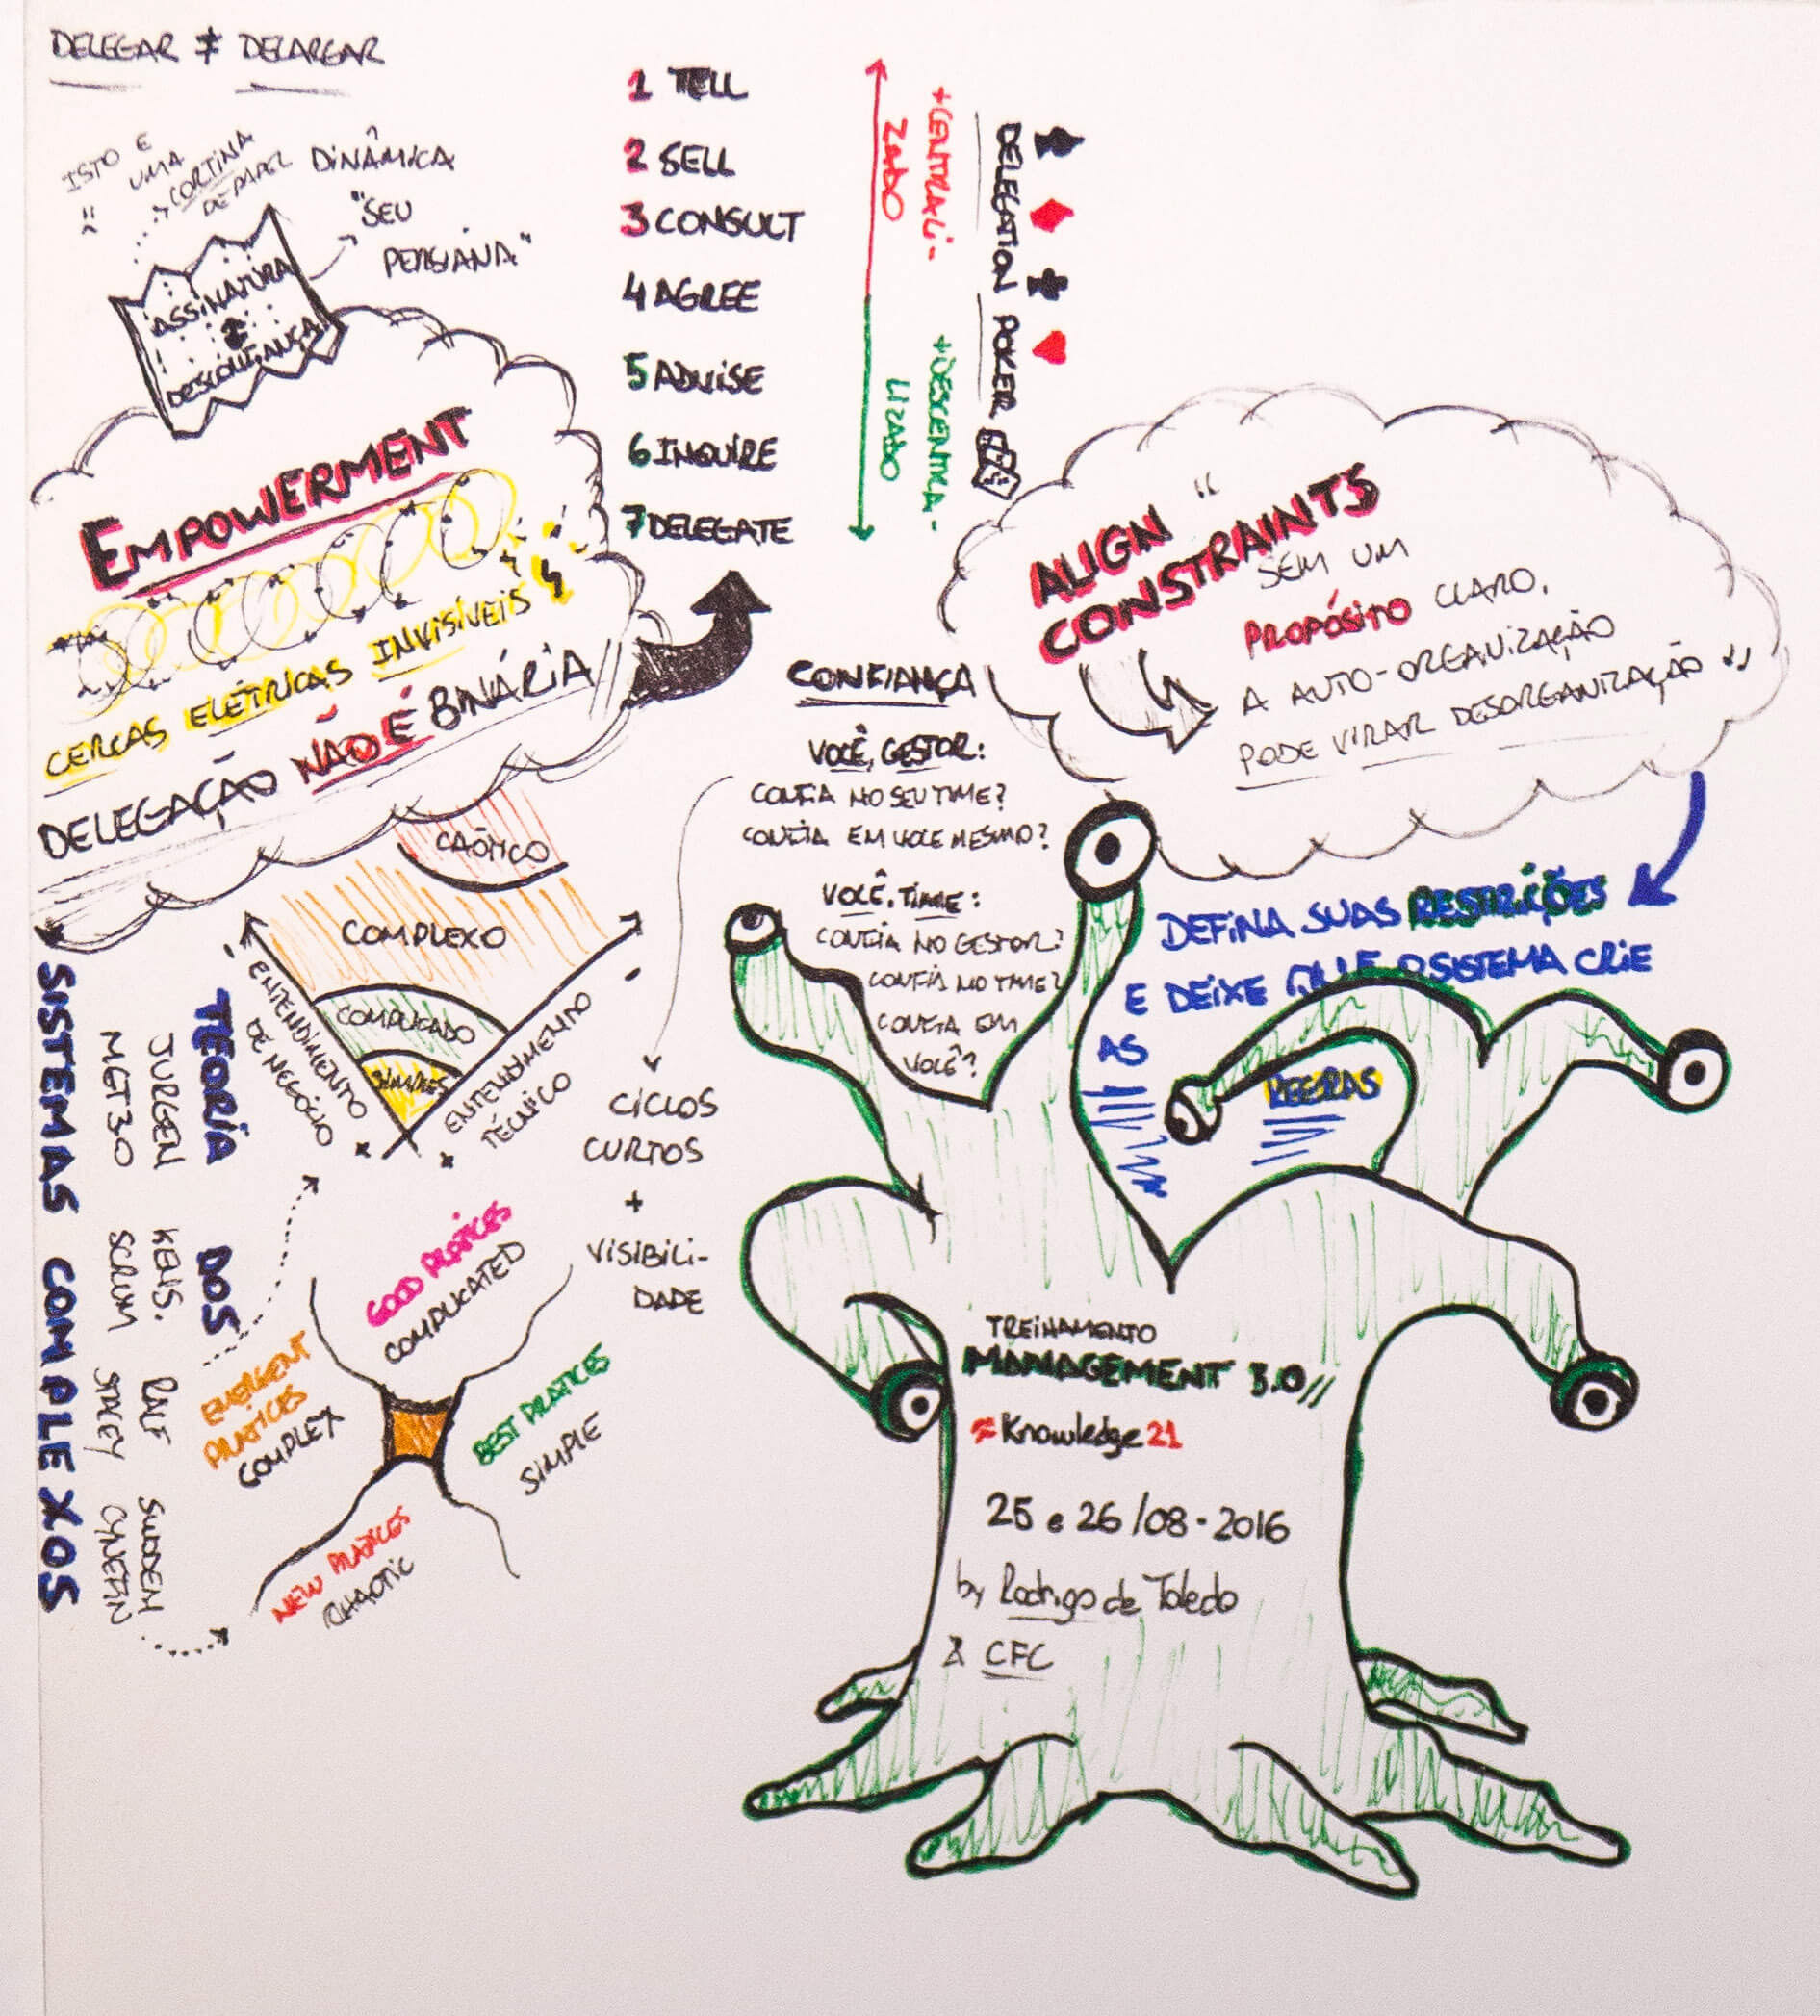 DELEGAR ≠ DELARGAR
ISTO E
UMA
CORTINA
DE PAPEL
DINÂMICA
"SEU
PERSIANA"
ASSINATURA
DESCONFIANÇA
EMPOWERMENT
CERCAS ELÉTRICAS INVISÍVEIS
DELEGAÇÃO NÃO É BINÁRIA
1 TELL
2 SELL
3 CONSULT
4 AGREE
5 ADVISE
6 INQUIRE
7 DELEGATE
+CENTRALI-
ZADO
+DESCENTRA-
LIZADO
DELEGATION POKER
ALIGN
CONSTRAINTS
"SEM UM
PROPÓSITO CLARO,
A AUTO-ORGANIZAÇÃO
PODE VIRAR DESORGANIZAÇÃO"
DEFINA SUAS RESTRIÇÕES
E DEIXE QUE O SISTEMA CRIE
AS
REGRAS
CONFIANÇA
VOCÊ, GESTOR:
CONFIA NO SEU TIME?
CONFIA EM VOCE MESMO?
VOCÊ, TIME:
CONFIA NO GESTOR?
CONFIA NO TIME?
CONFIA EM
VOCÊ?
CICLOS
CURTOS
+
VISIBILI-
DADE
TEORIA DOS
SISTEMAS COMPLEXOS
JURGEN
MGT30
KENS.
SCRUM
RALF
STACEY
SNODEM
CYNEFIN
CAÓTICO
COMPLEXO
COMPLICADO
SIMPLES
- ENTENDIMENTO
DE NEGÓCIO +
ENTENDIMENTO -
+ TÉCNICO
GOOD PRATICES
COMPLICATED
EMERGENT
PRATICES
COMPLEX
BEST PRATICES
SIMPLE
NEW PRATICES
CHAOTIC
TREINAMENTO
MANAGEMENT 3.0//
Knowledge21
25 e 26/08-2016
by Rodrigo de Toledo
& CFC